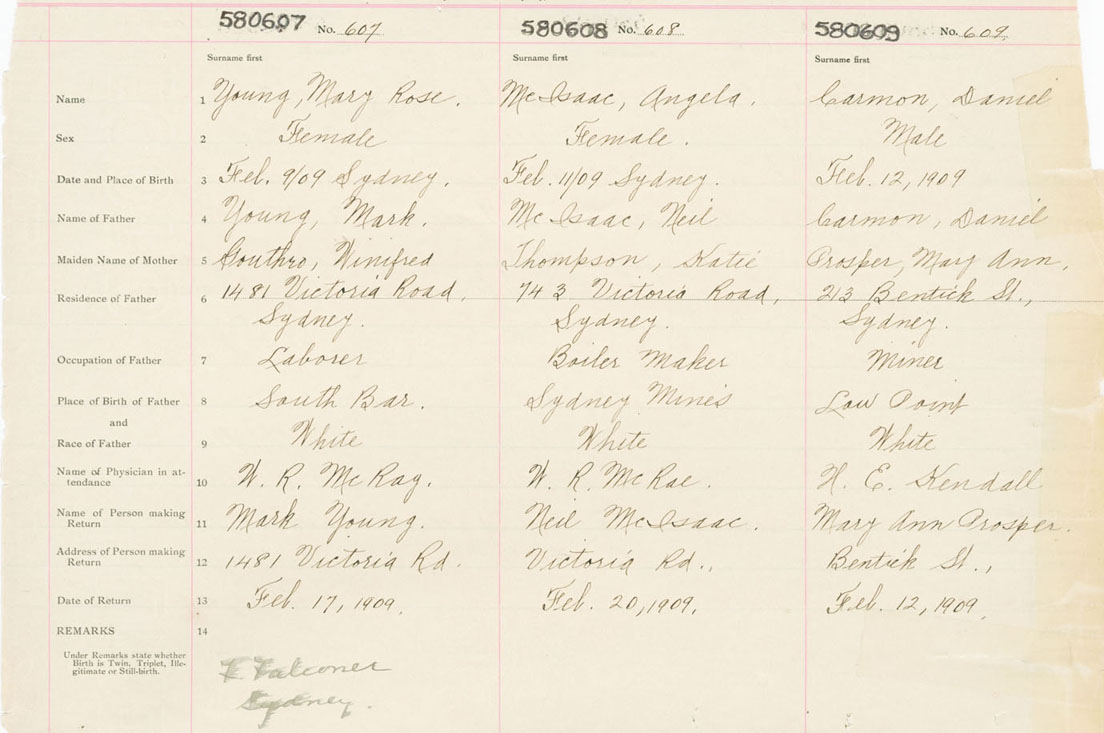 580607 No. 607 580608 No. 608 580609 No. 609
Surname first Surname first Surname first
Name 1 Young, Mary Rose. McIsaac, Angela. Carmon, Daniel
Sex 2 Female Female. Male
Date and Place of Birth 3 Feb. 9/09 Sydney. Feb. 11/09 Sydney. Feb. 12, 1909
Name of Father 4 Young, Mark. McIsaac, Neil Carmon, Daniel
Maiden Name of Mother 5 Gouthro, Winifred Thompson, Katie Prosper, Mary Ann.
Residence of Father 6 1481 Victoria Road, 743 Victoria Road, 213 Bentick St.,
Sydney. Sydney. Sydney.
Occupation of Father 7 Laborer Boiler Maker Miner
Place of Birth of Father 8 South Bar. Sydney Mines Low Point
and
Race of Father 9 White White White
Name of Physician in at-
tendance 10 W. R. McRay. W. R. McRae. H. E. Kendall
Name of Person making
Return 11 Mark Young. Neil McIsaac. Mary Ann Prosper.
Address of Person making
Return 12 1481 Victoria Rd. Victoria Rd., Bentick St.,
Date of Return 13 Feb. 17, 1909. Feb. 20, 1909. Feb. 12, 1909.
REMARKS 14
Under Remarks state whether
Birth is Twin, Triplet, Ille-
gitimate or Still-birth.
Falconer
Sydney.